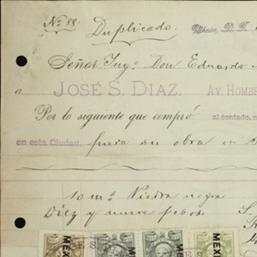 No. 18.
Duplicado. México, D. F.
Señor Ing. Don Eduardo
a JOSÉ S. DIAZ, AV. HOMBR
Por lo siguiente que compró al contado,
en esta Ciudad. para su obra en
10 m³ Piedra negra
Diez y nueve pesos.
MEX MEX MEX